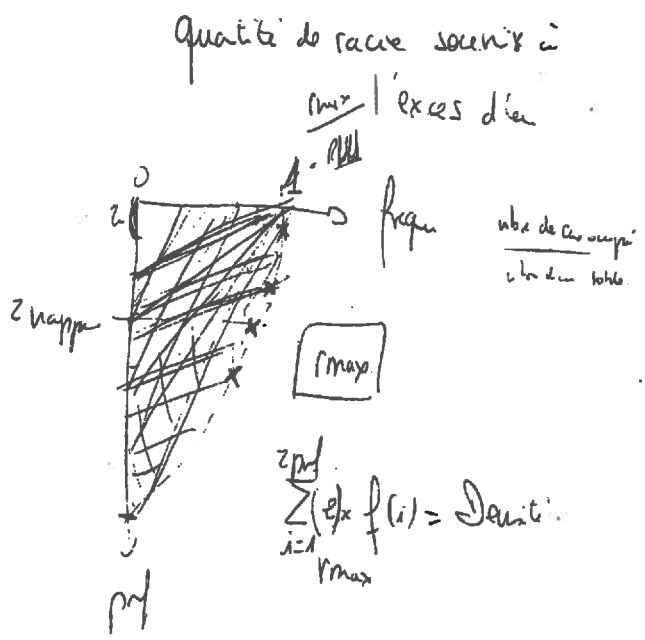 Quantité de racine soumis à
rmax l'exces d'eau
0 1
z
frequ
nbre de cm occupé
z nappe
rmax
z prf
∑ (z)x f(i) = Densité
i=1
rmax
prf